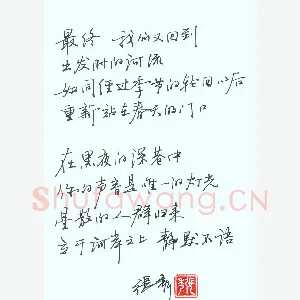 最终 我们又回到
出发时的河流
如同经过季节的轮回以后
重新站在春天的门口
在黑夜的深巷中
你的声音是唯一的灯光
星散的人群归来
立于河岸之上 静默不语
Shufawang.CN
张